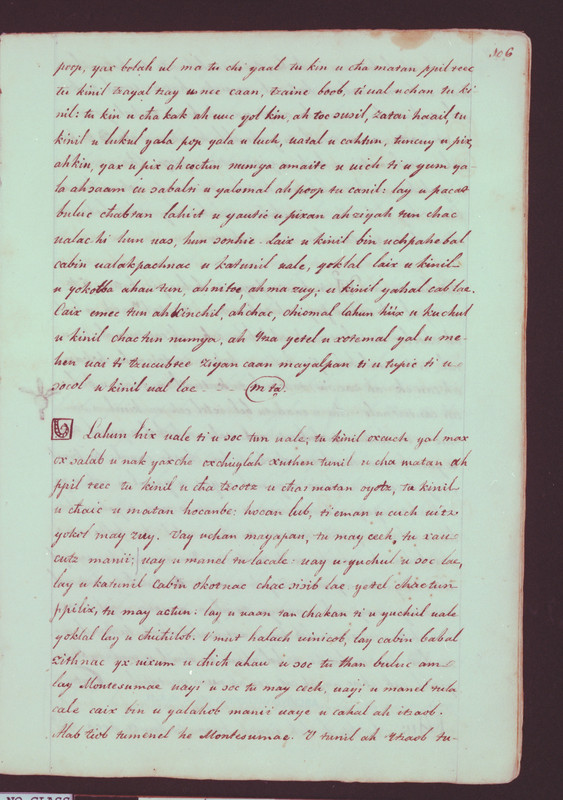 206
poop, yax bolah ul ma tu chi yaal tu kin u cha matan ppil reec
tu kinil tzayal tzay u nec caan, tzaine boob, ti ual uchan tu ki
nil: tu kin u cha kak ah uuc yol kin, ah toc susil, zatai haail, tu
kinil u lukul yala pop yala u luch, uatal u cahtun, tuncuy u pix,
ahkin, yax u pix ah coctun numya amaite u uich ti u yum ya-
la ahsaam cu sabalti u yalomal ah poop tu canil: lay u pacat
buluc chabtan lahict u yautic u pixan ah ziyah tun chac
ualac hi hun uas, hun sonhiz. laix u kinil bin uchpahebal
cabin ualakpachnac u katunil uale, yoklal laix u kinil
u yokotba ahau tun, ah nitoc ah ma zuy; u kinil yahal cab lae.
Caix emec tun ah Kinchil, ahchac, chiomal lahun hiix u kuchul
u kinil chactun numya, ah ytza yetel u xotemal yal u me-
hen uai ti tzucubtee ziyan caan mayalpan ti u tupic ti u
socol u kinil ual lae. ~ mta.
U Lahun hix uale ti u soc tun uale, tu kinil oxcuch yal max
ox salab u nak yaxche oxchuylah xuthen tunil u cha matan ah
ppil reec tu kinil u cha tzootz u char matan oyotz, tu kinil
u chaic u matan hocanbe: hocan lub, ti eman u cuch uitz
yokol may zuy. Vay uchan mayapan, tu may cech, tu xau
cutz manii; uay u manel tu lacale: uay u yuchul u soc lae,
lay u katunil cabin okotnac chac sisib lae yetel chactun
ppilix, tu may actun: lay u uaan tan chakan ti u yuchul uale
yoklal lay u chichilob. V mut halach uinicob, lay cabin babal
zithnac yx uixum u chich ahau u soc tu than buluc am
lay Montesumae uayi u soc tu may cech, uayi u manel tula
cale caix bin u yalahob manii uaye u cahal ah itzaob.
Hab ziob tumenel he Montesumae. V tunil ah ytzaob tu-